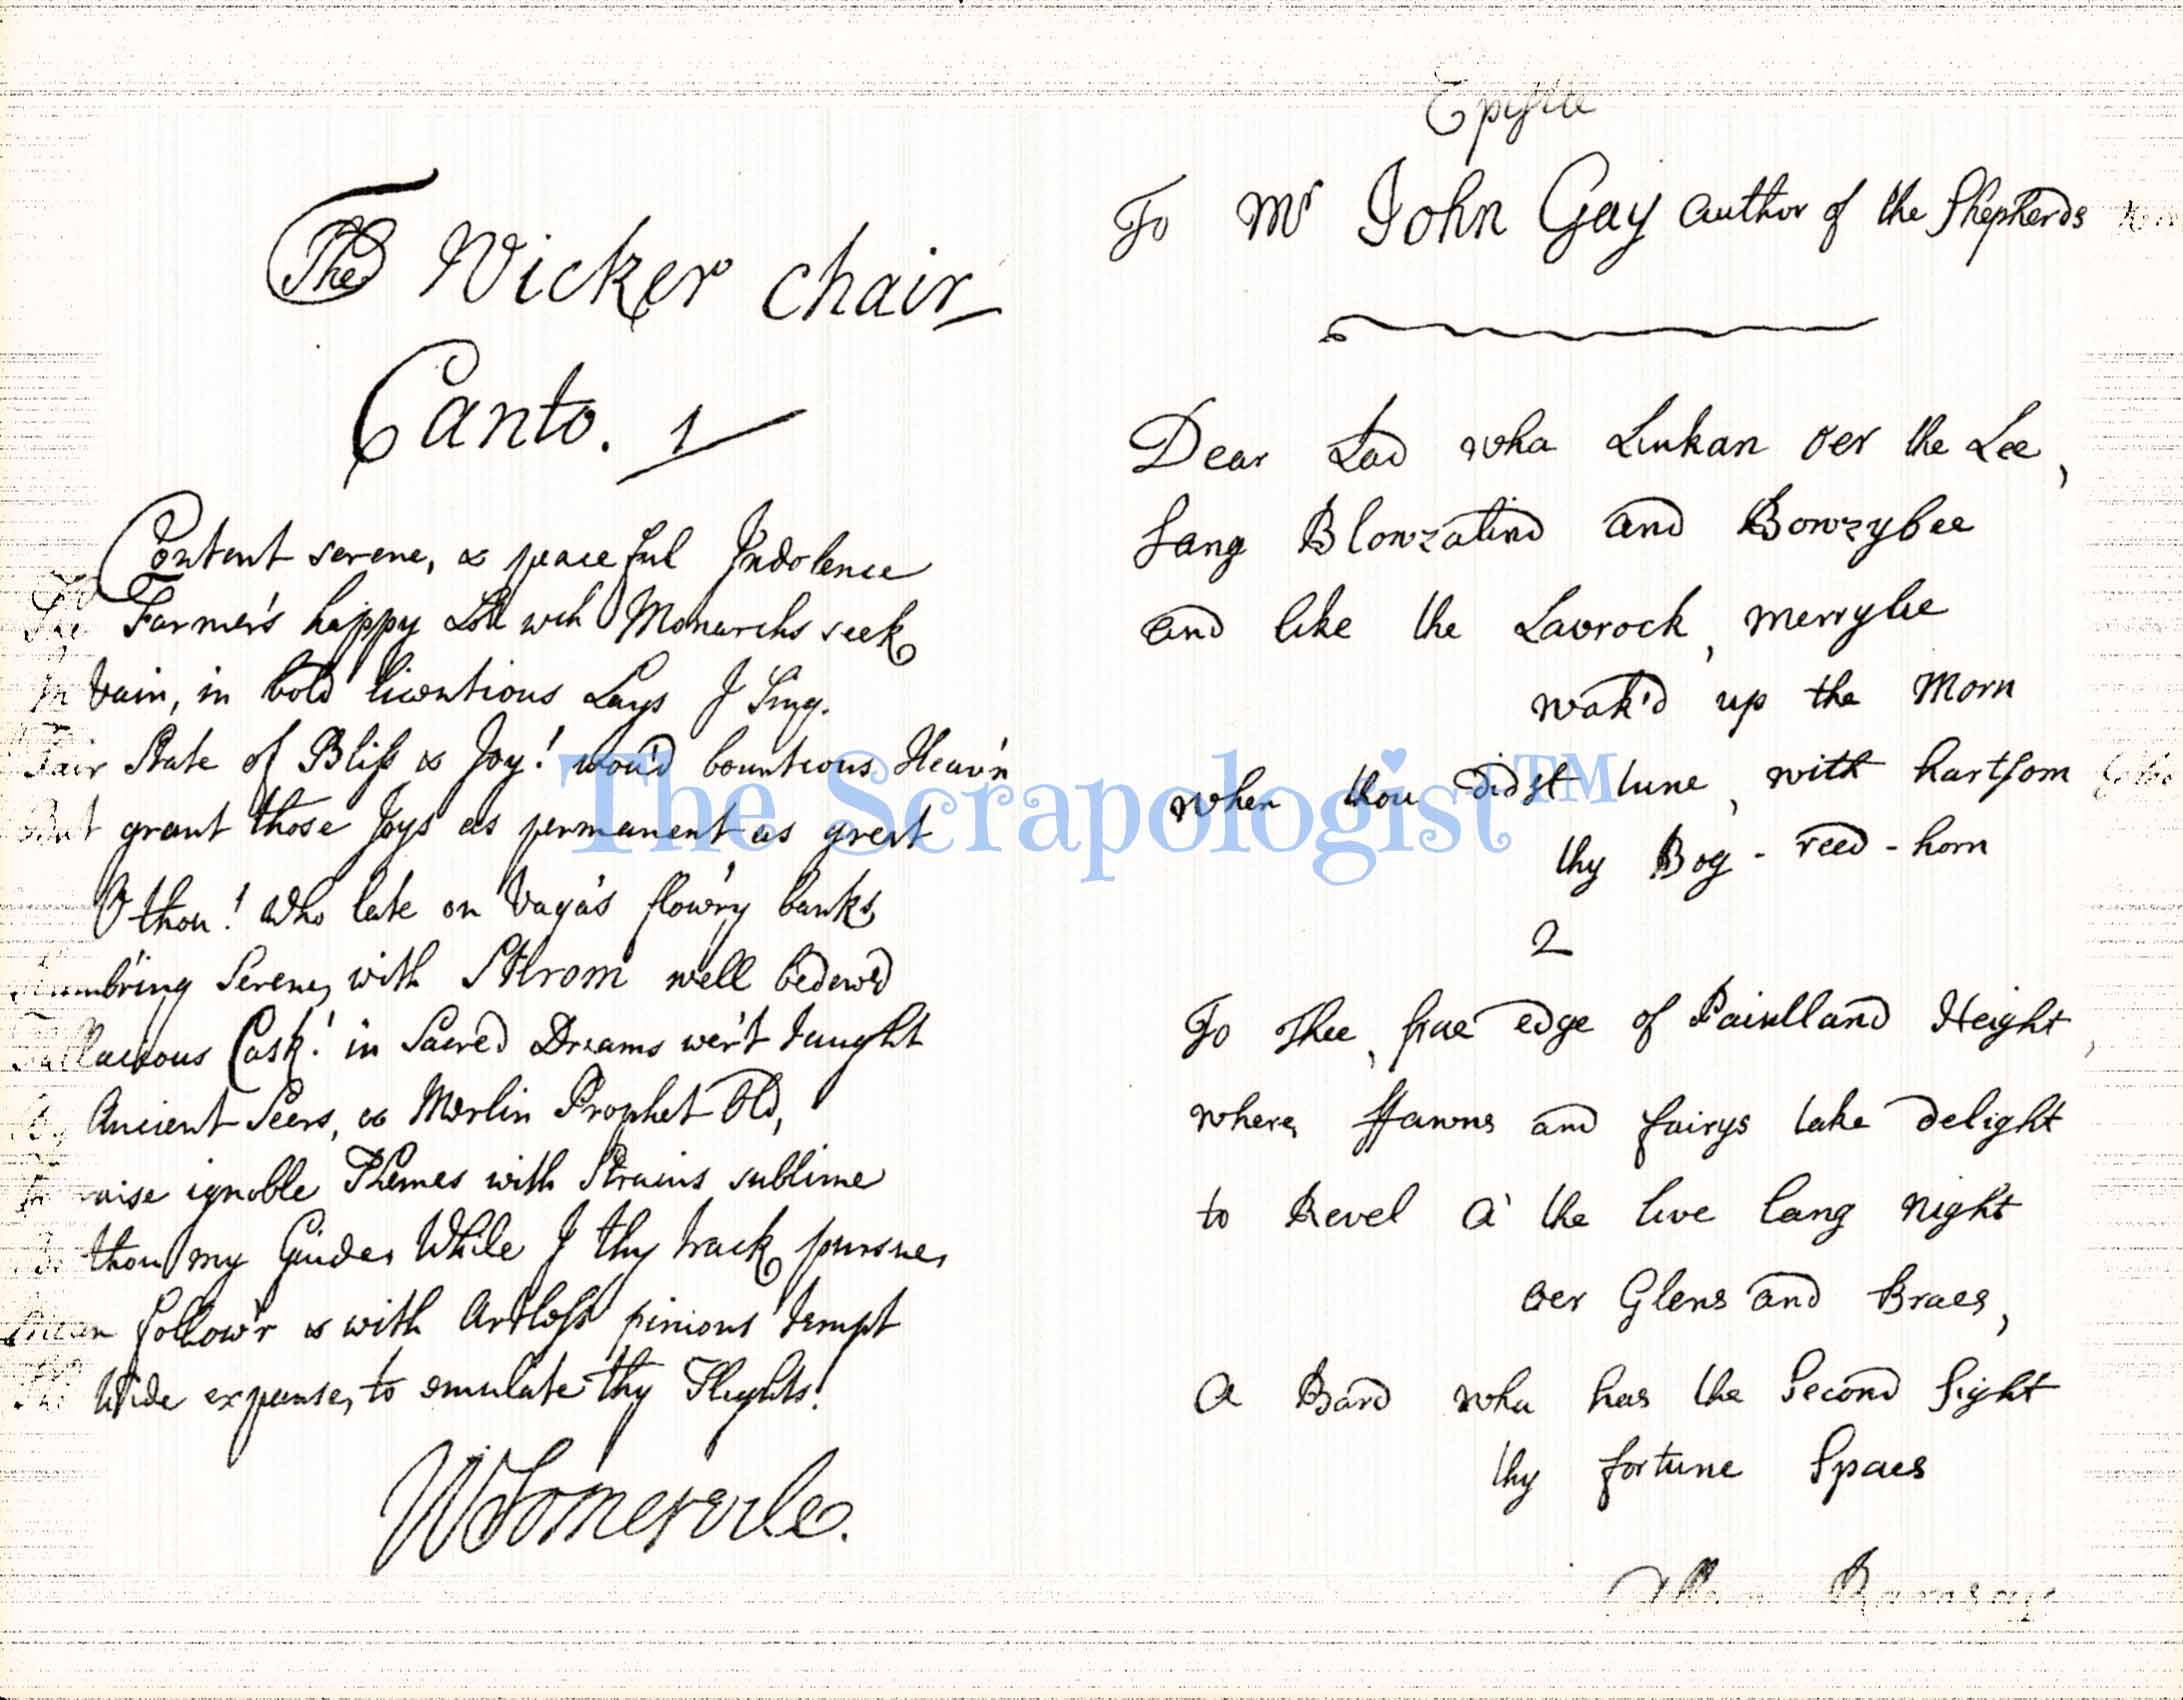 The Wicker chair
Canto. 1
Content serene, & peaceful Indolence
The Farmer's happy Lot wch Monarchs seek
In vain, in bold licentious Lays I Sing.
Fair State of Bliss & Joy! wou'd bounteous Heav'n
But grant those Joys as permanent as great
O thou! who late on Vaga's flow'ry banks
Slumb'ring Serene, with Stirom well bedew'd
Fallacious Cask! in Sacred Dreams wer't taught
By Ancient Seers, & Merlin Prophet Old,
To raise ignoble Themes with Strains sublime
Be thou my Guide, While I thy track pursue,
Mean follow'r & with Artless pinions tempt
The Wide expanse, to emulate thy Flights!
WSomervile.
Epistle
To Mr John Gay author of the Shepherds
Dear Lad wha Linkan o'er the Lee,
Sang Blowzalind and Bowzybee
and like the Lavrock, merrylie
wak'd up the Morn
when thou didst tune, with hartsom
thy Bog-reed-horn
2
To Thee, frae edge of Paintland Height,
where Ffawns and fairys take delight
to Revel a' the live lang night
o'er Glens and Braes,
a Bard wha has the Second sight
thy fortune Spaes
Allan Ramsay
The Scrapologist™